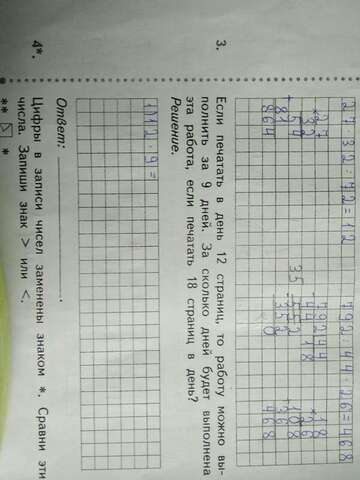 27·32:72=12
792:44·26=468
×27
32
54
81
864
792 44
44 18
352
352
0
35
×18
26
108
36
468
3. Если печатать в день 12 страниц, то работу можно вы-
полнить за 9 дней. За сколько дней будет выполнена
эта работа, если печатать 18 страниц в день?
Решение.
1)12·9=
Ответ:
4*. Цифры в записи чисел заменены знаком *. Сравни эти
числа. Запиши знак > или <.
** *